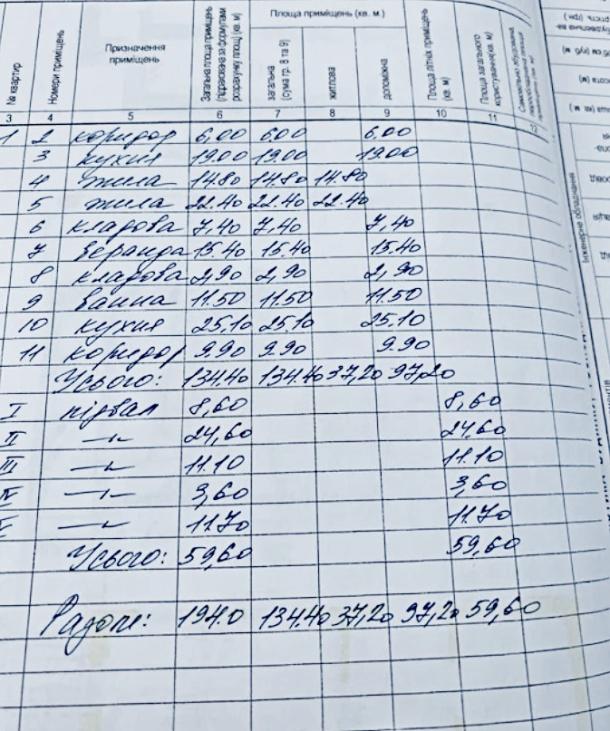 Площа приміщень (кв. м.)
№ квартир
Номери приміщень
Призначення приміщень
Загальна площа приміщень
загальна (сума гр. 8 та 9)
житлова
допоміжна
Площа літніх приміщень (кв. м)
Площа загального користування (кв. м)
3 4 5 6 7 8 9 10 11 12
1 2 коридор 6,00 6.00 6,00
3 кухня 19.00 19.00 19.00
4 жила 14.80 14.80 14.80
5 жила 22.40 22.40 22.40
6 кладова 7,40 7,40 7,40
7 веранда 15.40 15.40 15.40
8 кладова 2,90 2,90 2,90
9 ванна 11.50 11.50 11.50
10 кухня 25.10 25.10 25.10
11 коридор 9.90 9.90 9.90
Усього: 134.40 134.40 37,20 97,20
I підвал 8,60 8,60
II —„— 24,60 24,60
III —„— 11.10 11.10
IV —„— 3,60 3,60
V —„— 11.70 11.70
Усього: 59,60 59,60
Разом: 194.0 134.40 37,20 97,20 59,60
Інженерне обладнання